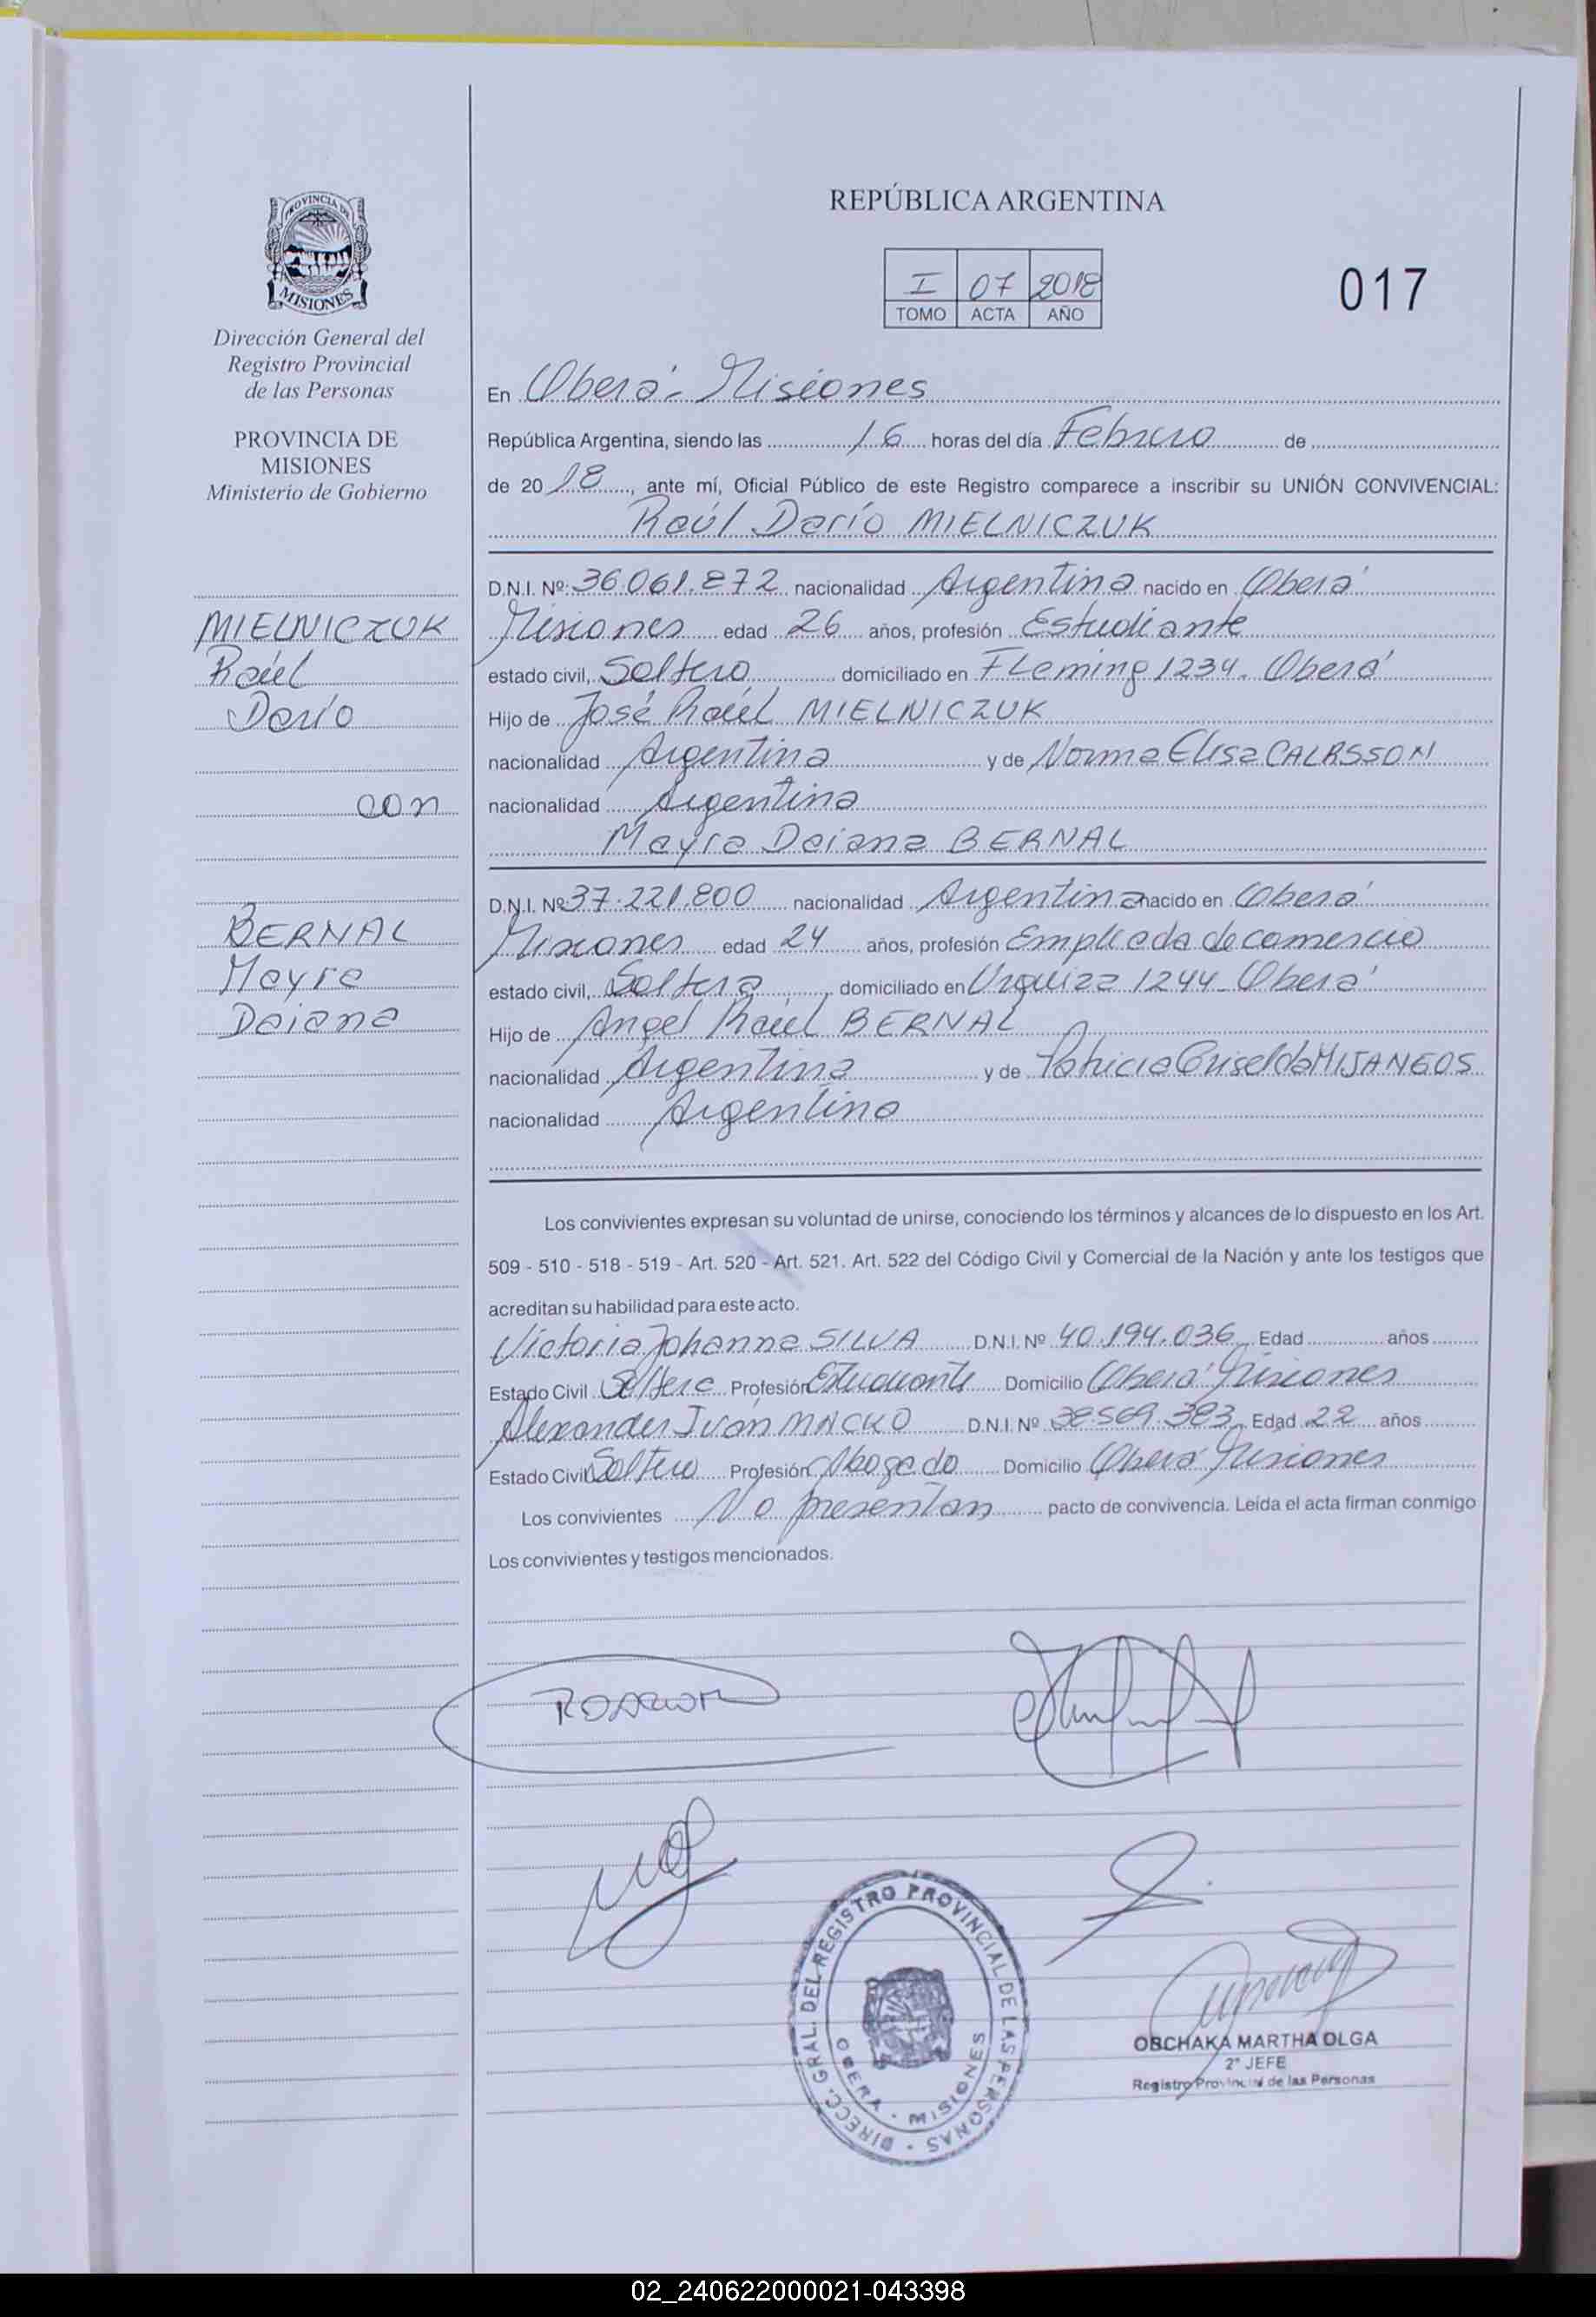 REPÚBLICA ARGENTINA
PROVINCIA DE
MISIONES
I 07 2018
TOMO ACTA AÑO
017
Dirección General del
Registro Provincial
de las Personas
PROVINCIA DE
MISIONES
Ministerio de Gobierno
En Oberá - Misiones
República Argentina, siendo las 16 horas del día Febrero de
de 20 18, ante mí, Oficial Público de este Registro comparece a inscribir su UNIÓN CONVIVENCIAL:
Raúl Darío MIELNICZUK
MIELNICZUK
Raúl
Darío
con
BERNAL
Mayra
Daiana
D.N.I. Nº: 36.061.872 nacionalidad Argentina nacido en Oberá
Misiones edad 26 años, profesión Estudiante
estado civil, Soltero domiciliado en Fleming 1234. Oberá
Hijo de José Raúl MIELNICZUK
nacionalidad Argentina y de Norma Elisa CALRSSON
nacionalidad Argentina
Mayra Daiana BERNAL
D.N.I. Nº 37.221.800 nacionalidad Argentina nacido en Oberá
Misiones edad 24 años, profesión Empleada de comercio
estado civil, Soltera domiciliado en Urquiza 1244 - Oberá
Hijo de Angel Raúl BERNAL
nacionalidad Argentina y de Patricia Griselda MIJANGOS
nacionalidad Argentina
Los convivientes expresan su voluntad de unirse, conociendo los términos y alcances de lo dispuesto en los Art.
509 - 510 - 518 - 519 - Art. 520 - Art. 521. Art. 522 del Código Civil y Comercial de la Nación y ante los testigos que
acreditan su habilidad para este acto.
Victoria Johanna SILVA D.N.I. Nº 40.194.036 Edad años
Estado Civil Soltera Profesión Estudiante Domicilio Oberá Misiones
Alexander Iván MACKO D.N.I. Nº 38.569.383 Edad 22 años
Estado Civil Soltero Profesión Abogado Domicilio Oberá Misiones
Los convivientes No presentan pacto de convivencia. Leída el acta firman conmigo
Los convivientes y testigos mencionados.
DIRECC. GRAL. DEL REGISTRO PROVINCIAL DE LAS PERSONAS
OBERA - MISIONES
OBCHAKA MARTHA OLGA
2º JEFE
Registro Provincial de las Personas
02_240622000021-043398